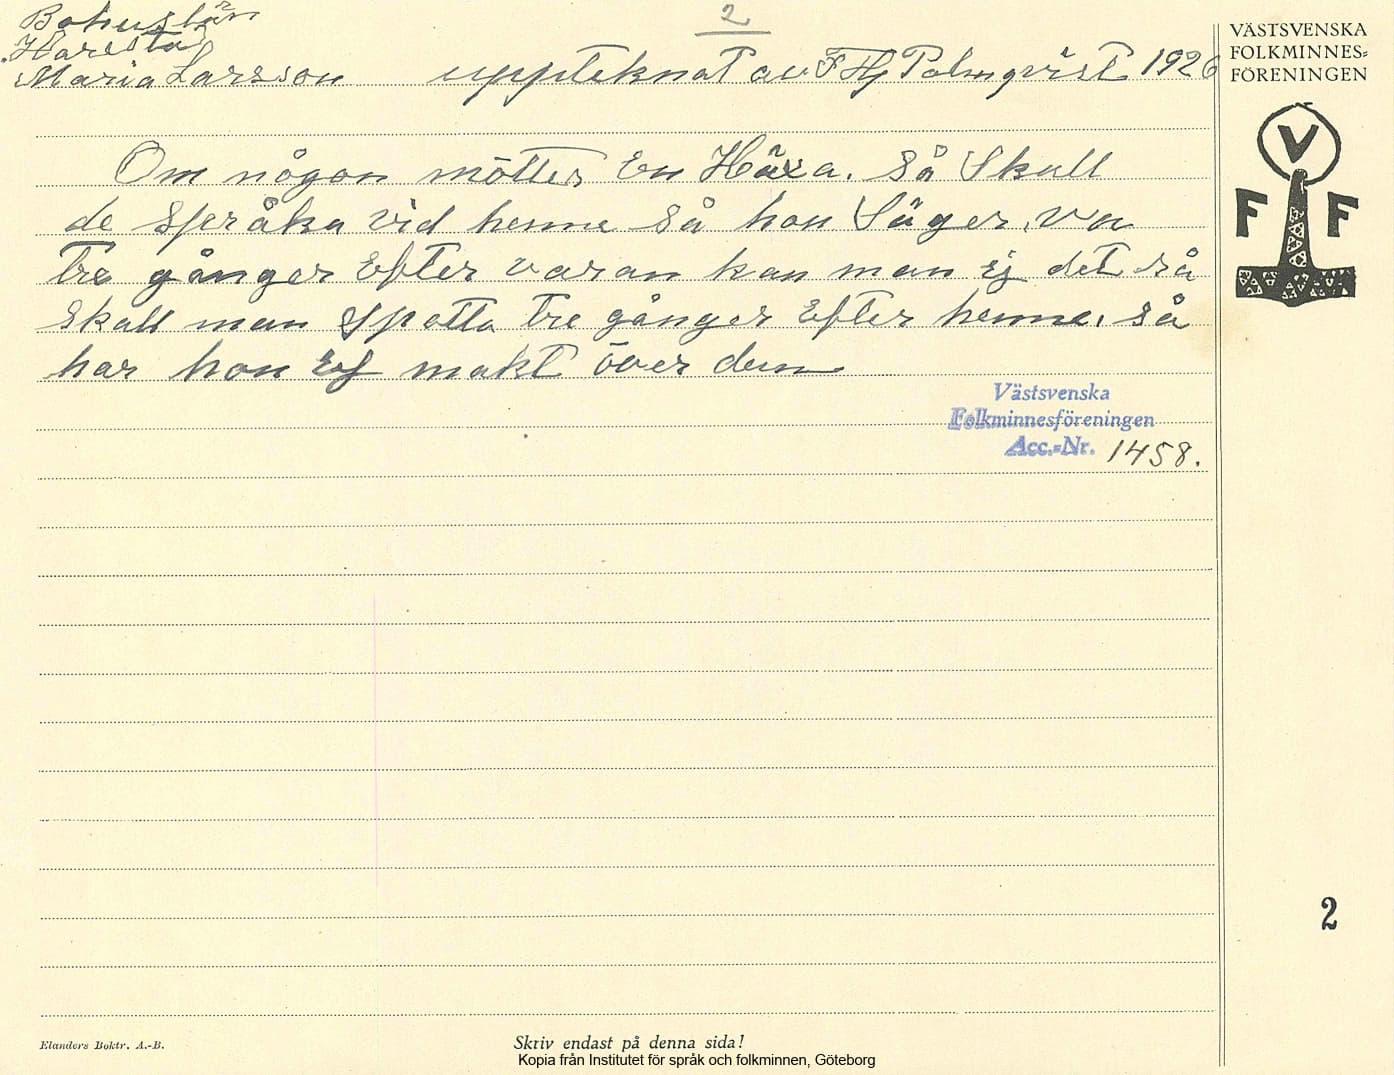 2
Bohuslän
Harestad
Maria Larsson uppteknat av F Hj Palmqvist 1926
Om någon mötter En Häxa. så Skall
de språka vid henne så hon Säger.
tre gånger Efter varan kan man Ej det så
skall man Spotta tre gånger Efter henne. så
har hon Ej makt över dem
Västsvenska
Folkminnesföreningen
Acc.-Nr. 1458.
VÄSTSVENSKA
FOLKMINNES-
FÖRENINGEN
V
F F
2
Elanders Boktr. A.-B.
Skriv endast på denna sida!
Kopia från Institutet för språk och folkminnen, Göteborg